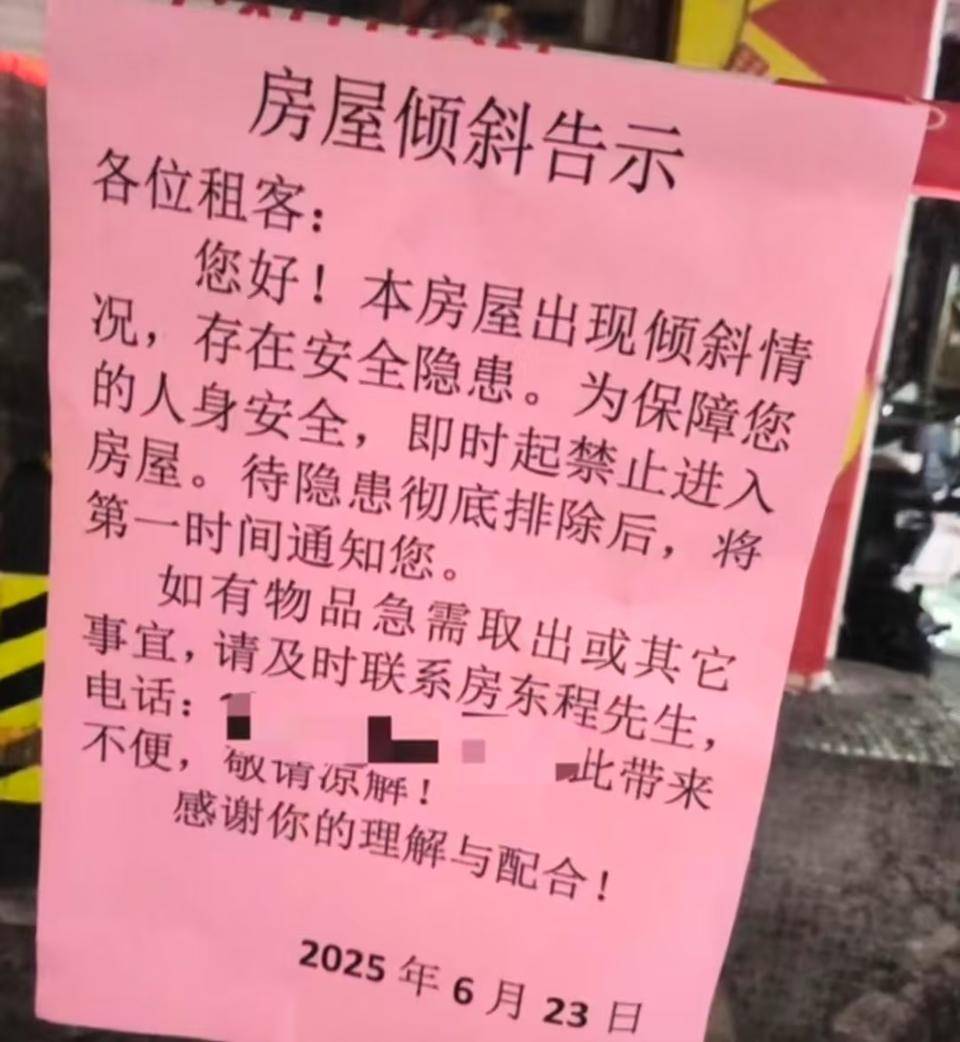 房屋倾斜告示
各位租客：
您好！本房屋出现倾斜情
况，存在安全隐患。为保障您
的人身安全，即时起禁止进入
房屋。待隐患彻底排除后，将
第一时间通知您。
如有物品急需取出或其它
事宜，请及时联系房东程先生，
电话：
此带来
不便，敬请凉解！
感谢你的理解与配合！
2025年6月23日